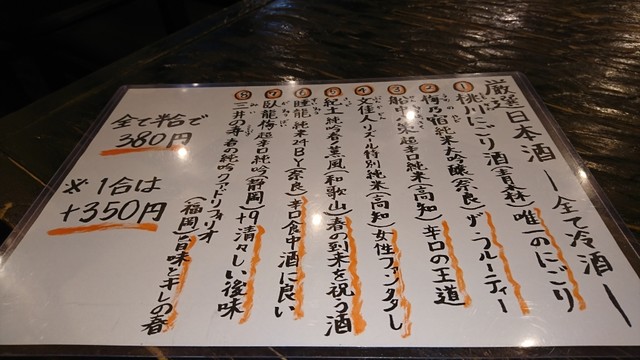 厳選日本酒 ー全て冷酒ー
① 桃川にごり酒(青森) 唯一のにごり
② 梅乃宿 純米大吟醸(奈良) ザ・フルーティー
③ 船中八策 超辛口純米(高知) 辛口の王道
④ 文佳人 リズール特別純米(高知) 女性ファン多し
⑤ 紀土 純吟 春の薫風(和歌山) 春の到来を祝う酒
⑥ 睡龍 純米 BY(奈良) 辛口食中酒に良い
⑦ 臥龍梅 超辛口純吟(静岡) +9 清々しい後味
⑧ 三井の寿 春の純吟クアドリフォリオ(福岡) 旨味とキレの春
全て半合で
380円
※1合は
+350円